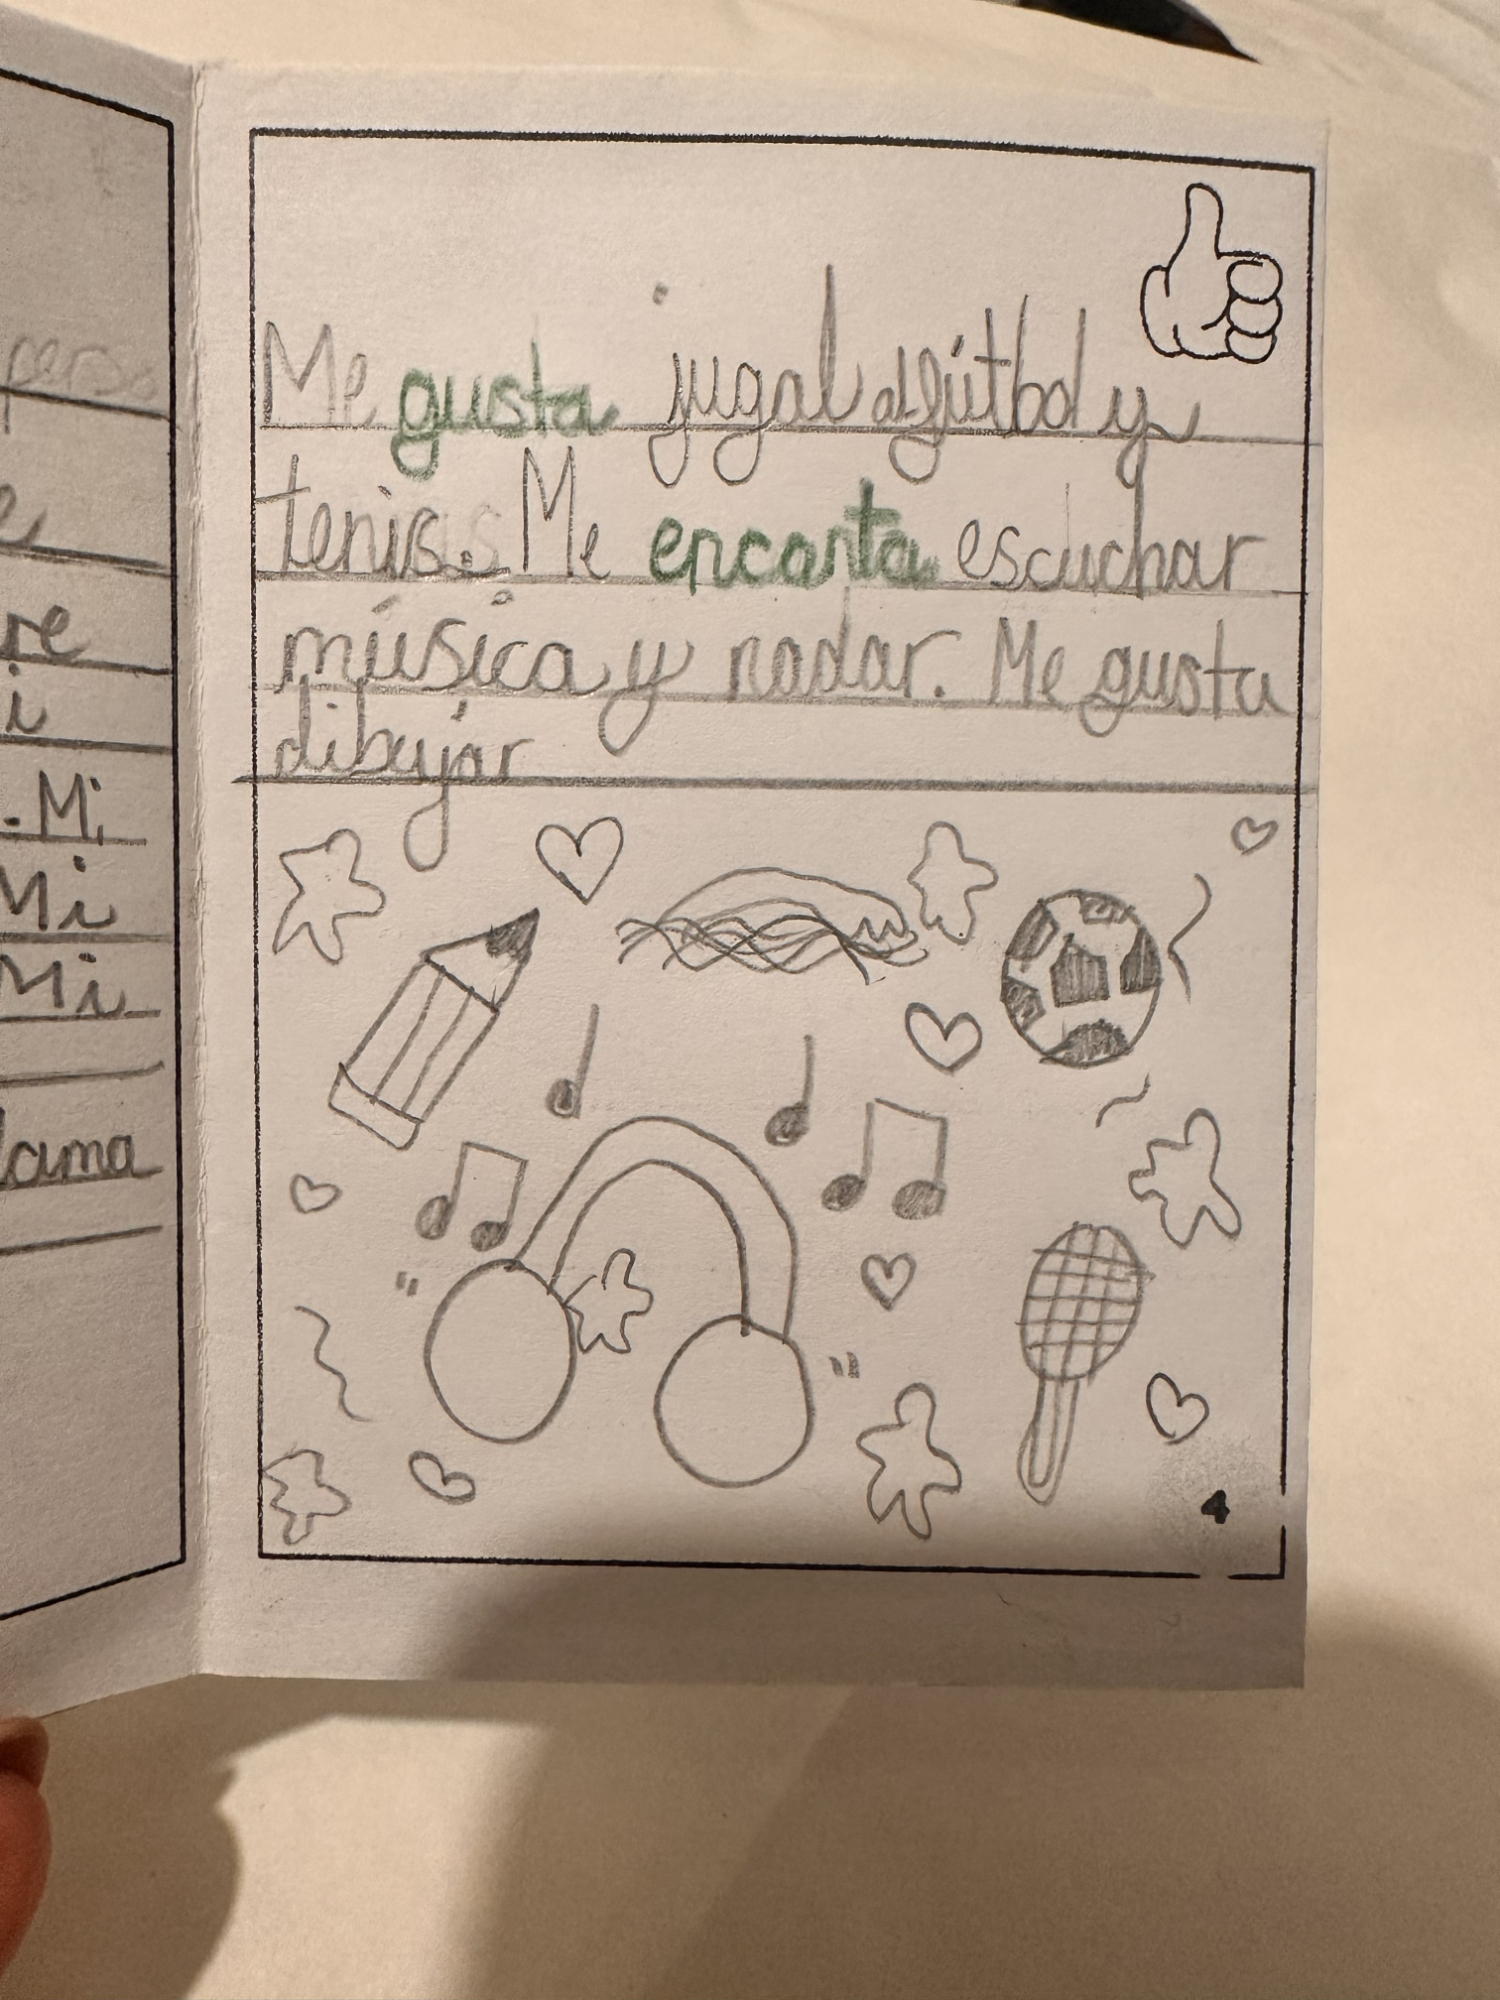 perso
e
re
i
. Mi
Mi
Mi
lama
Me gusta jugal al fútbol y
tenis. Me encanta escuchar
música y nadar. Me gusta
dibujar
4